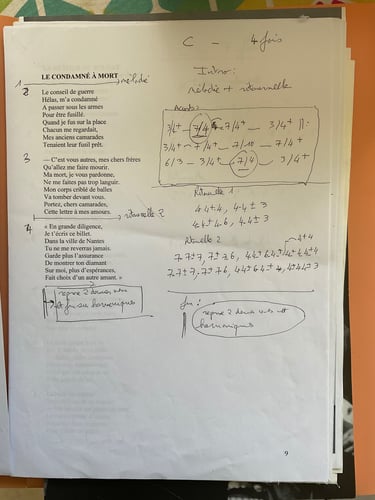 C - 4 fois
LE CONDAMNÉ À MORT
1 mélodie
Intro:
mélodie + ritournelle
2 Le conseil de guerre
Hélas, m'a condamné
A passer sous les armes
Pour être fusillé.
Quand je fus sur la place
Chacun me regardait,
Mes anciens camarades
Tenaient leur fusil prêt.
3 — C'est vous autres, mes chers frères
Qu'allez me faire mourir.
Ma mort, je vous pardonne,
Ne me faites pas trop languir.
Mon corps criblé de balles
Va tomber devant vous.
Portez, chers camarades,
Cette lettre à mes amours.
ritournelle 2
4 « En grande diligence,
Je t'écris ce billet.
Dans la ville de Nantes
Tu ne me reverras jamais.
Garde plus l'assurance
De montrer ton diamant
Sur moi, plus d'espérances,
Fait choix d'un autre amant. »
reprise 2 derniers vers
et fin sur harmoniques
Accords:
3/4+ - 7/4 - 7/4+ - 3/4+ ||:
3/4+ - 7/4+ - 7/10 - 7/4+
6/3 - 3/4+ - 7/4 - 3/4+
Ritournelle 1
Ritournelle 2
4+4
fin:
reprise 2 derniers vers et
harmoniques
9